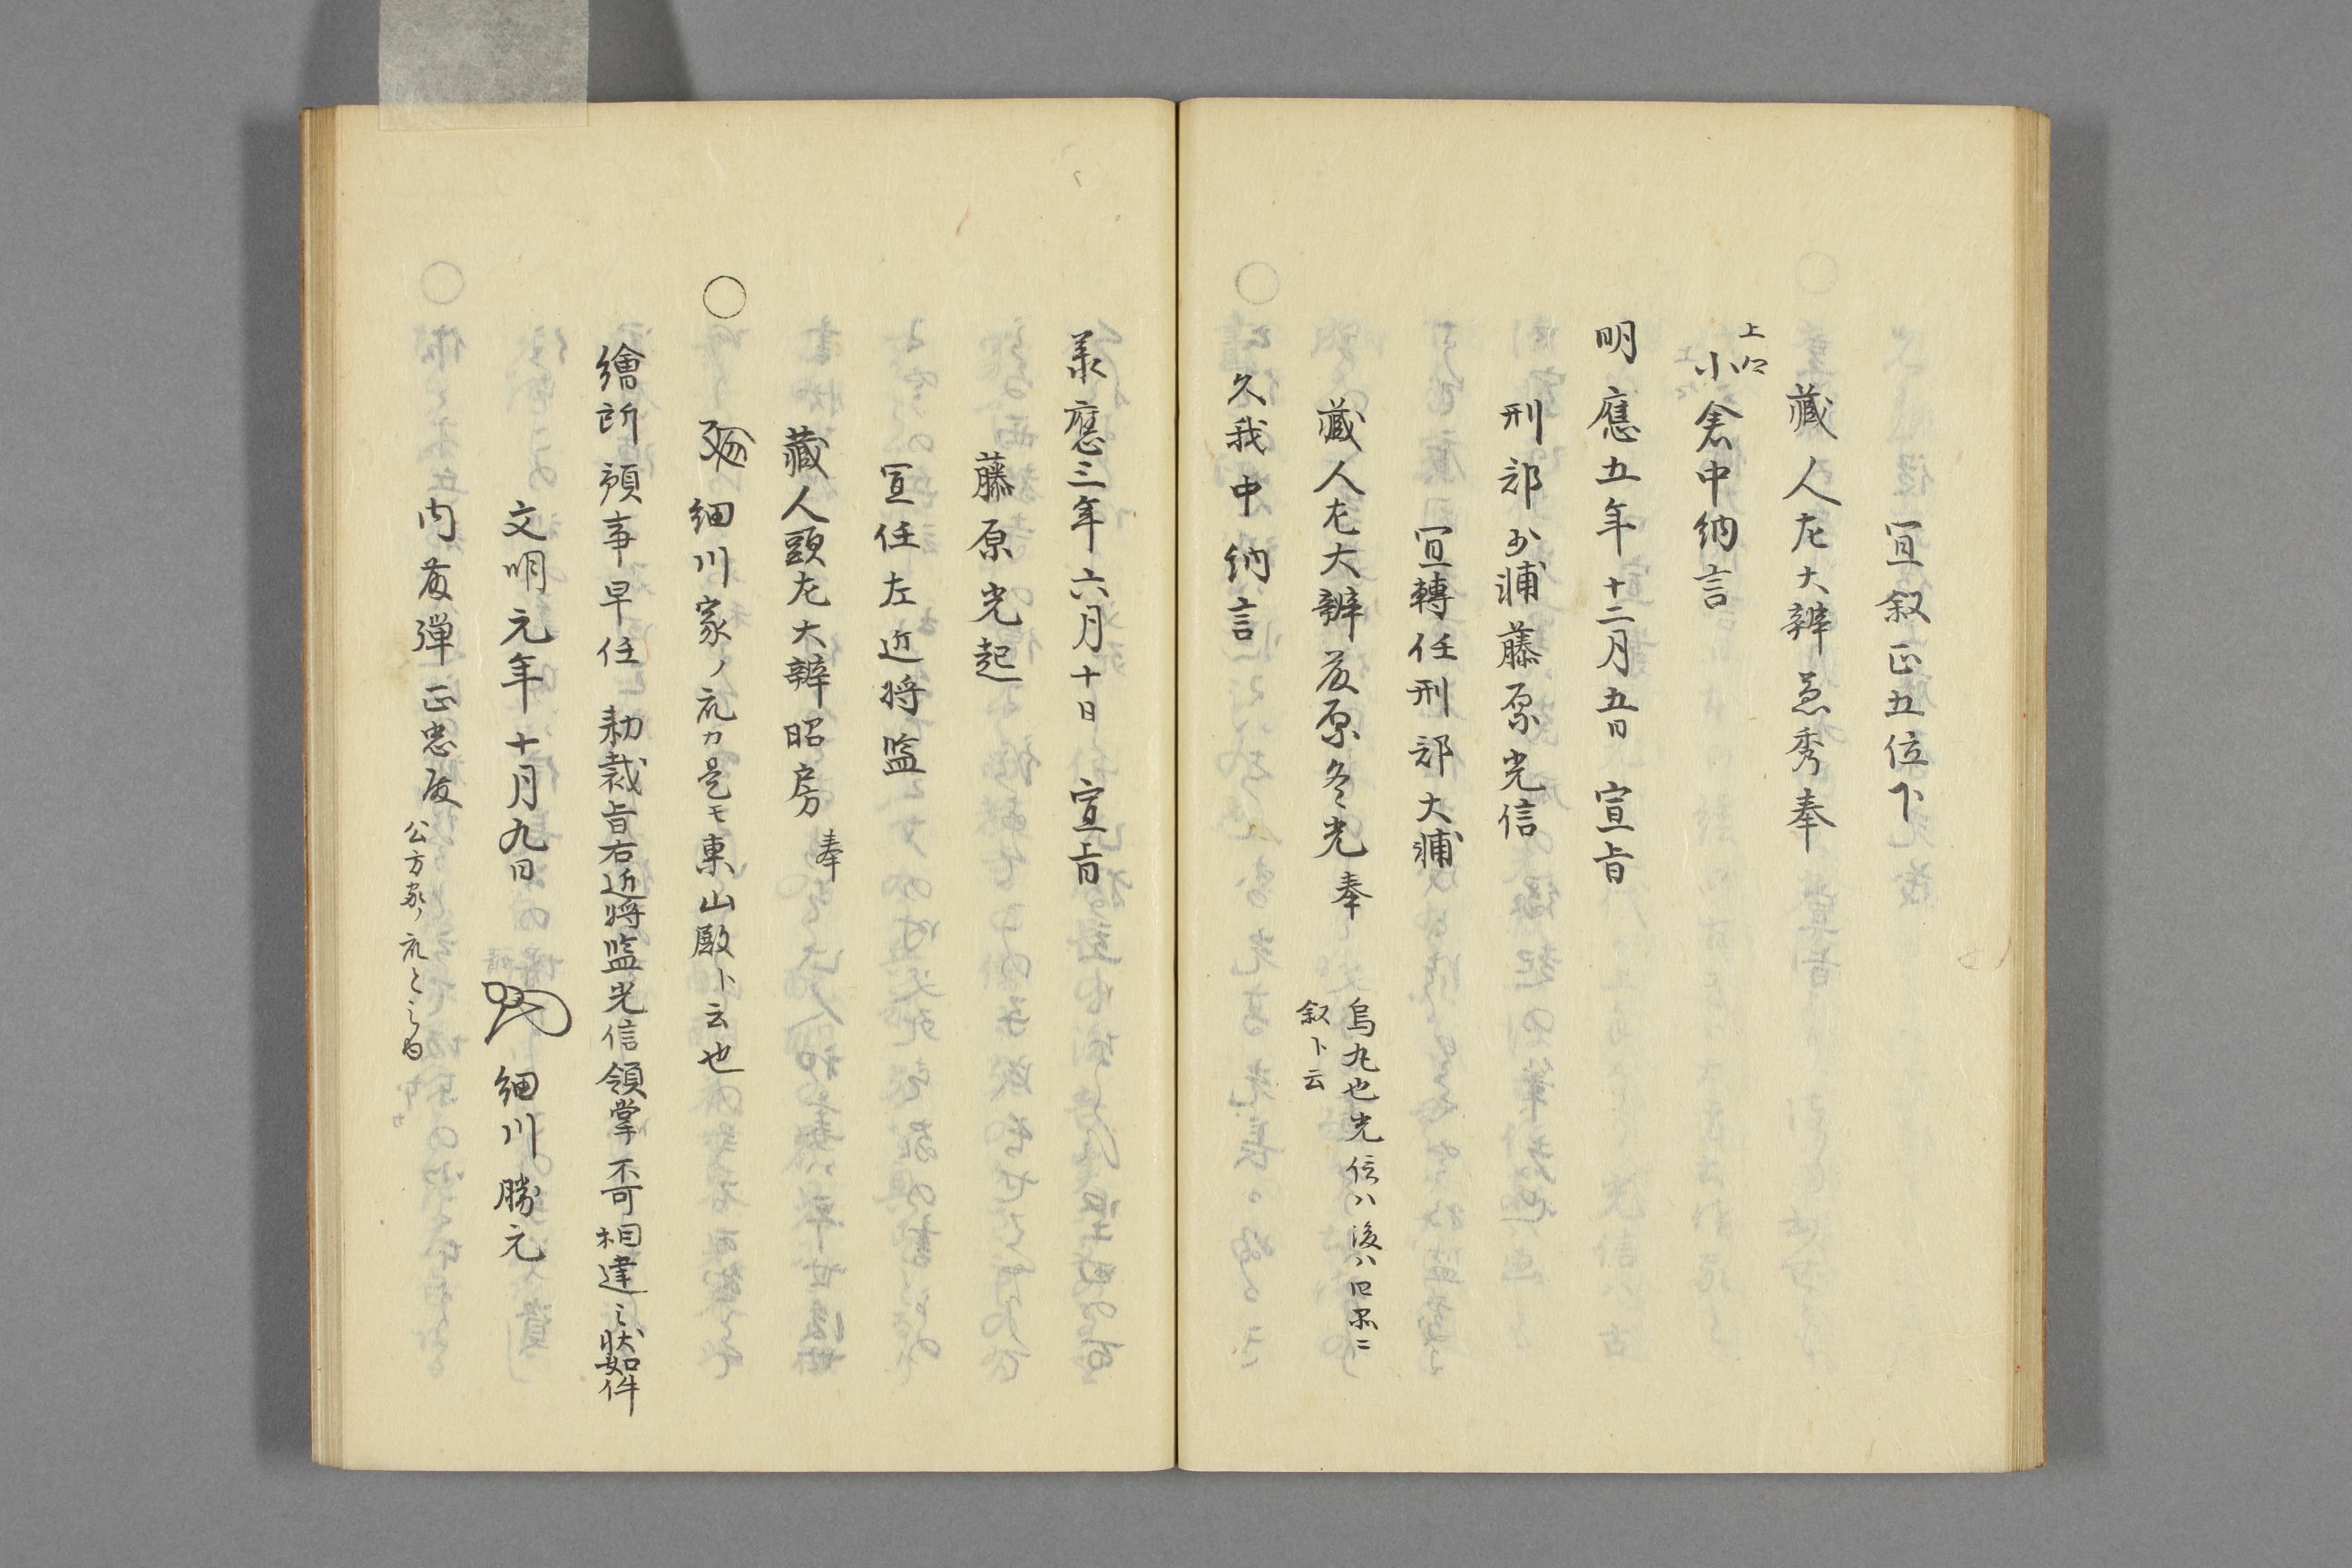 宣叙正五位下
藏人左大辨 秀奉
上卿
小倉中納言
明應五年十二月五日 宣旨
刑部少浦藤原光信
宣轉任刑部大浦
藏人左大辨藤原冬光奉
烏丸也光信ハ後ハ四品ニ
叙ト云
久我中納言
承應三年六月十日 宣旨
藤原光起
宣任左近将監
藏人頭左大辨昭房奉
○
細川家ノ 力是モ東山殿ト云也
繪所預事早任 勅裁旨右近将監光信領掌不可相違之状如件
文明元年十月九日 細川勝元
内藤彈正忠殿
公方家ノ